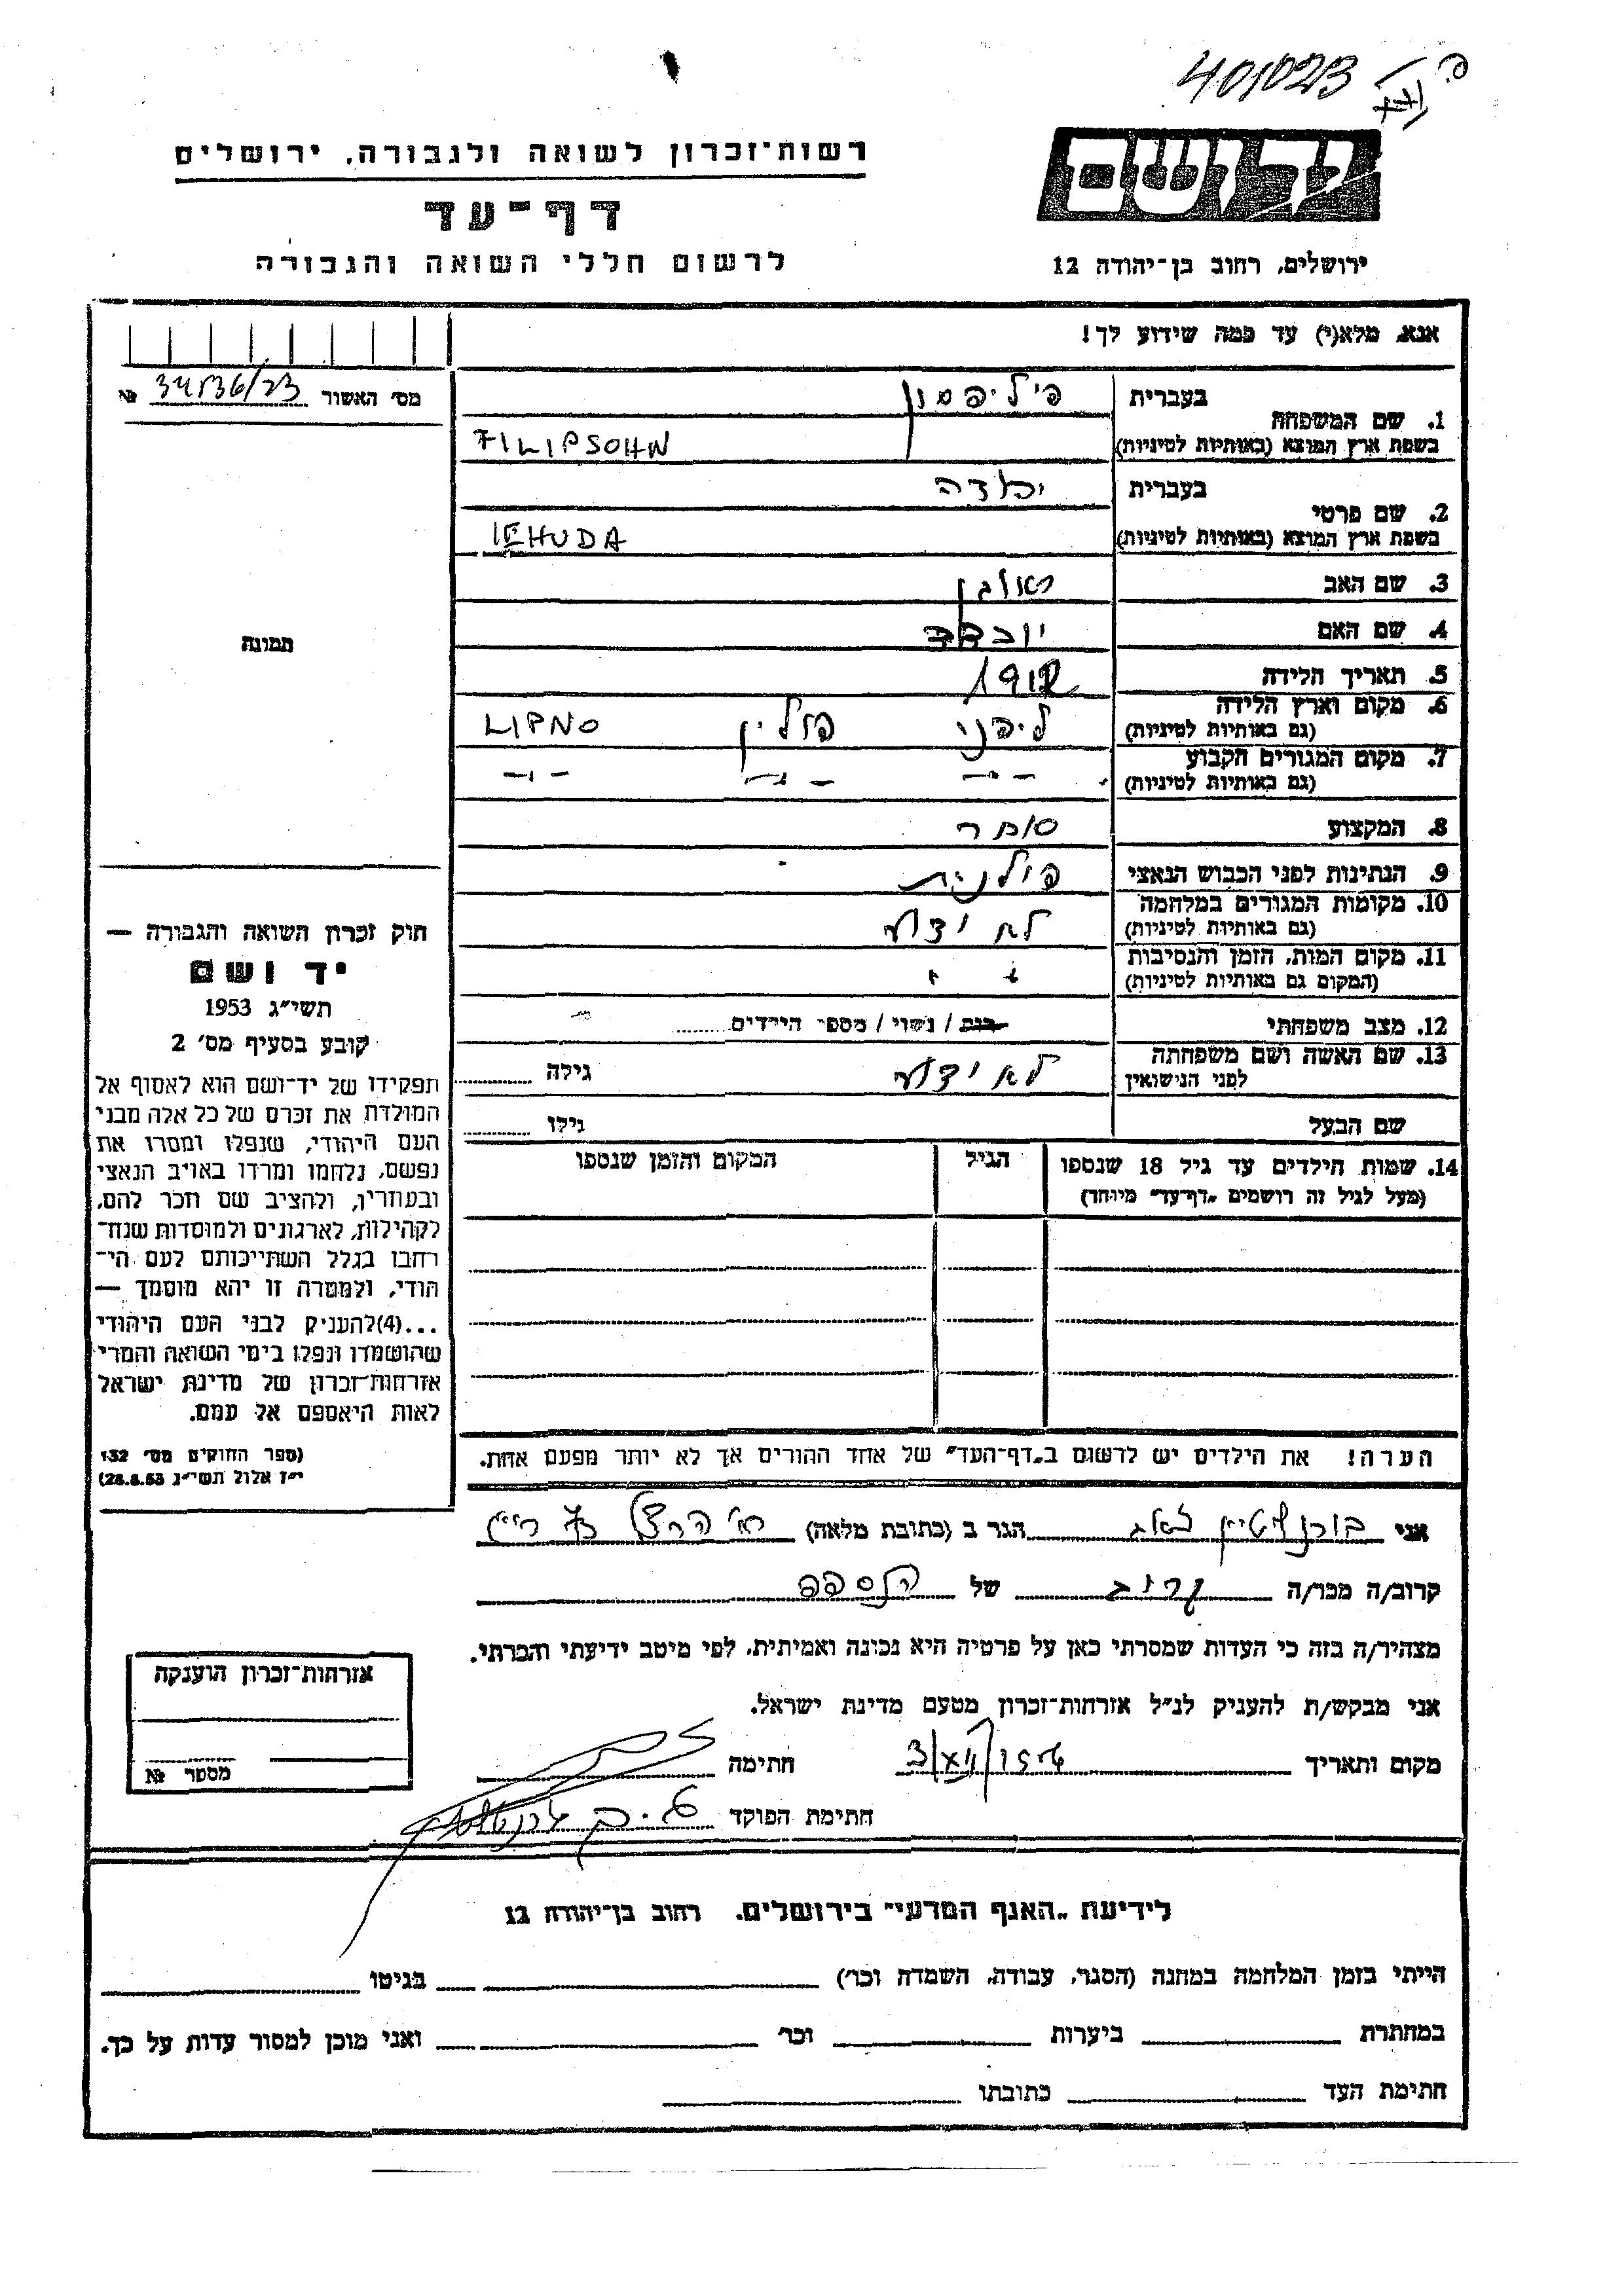 401023
רשות־זכרון לשואה ולגבורה, ירושלים
יד ושם
דף־עד
לרשום חללי השואה והגבורה
ירושלים, רחוב בן־יהודה 12
אנא, מלא(י) עד כמה שידוע לך!
מס׳ האשור 34536/23 №
1. שם המשפחה
בעברית פיליפסון
בשפת ארץ המוצא (באותיות לטיניות) FILIPSOHN
2. שם פרטי
בעברית יהודה
בשפת ארץ המוצא (באותיות לטיניות) IEHUDA
3. שם האב ראובן
4. שם האם יוכבד
5. תאריך הלידה
6. מקום וארץ הלידה
(גם באותיות לטיניות) ליפני פולין LIPNO
7. מקום המגורים הקבוע
(גם באותיות לטיניות) – " – – " – – " –
8. המקצוע סוחר
9. הנתינות לפני הכבוש הנאצי פולנית
10. מקומות המגורים במלחמה
(גם באותיות לטיניות) לא ידוע
11. מקום המות, הזמן והנסיבות
(המקום גם באותיות לטיניות) " "
12. מצב משפחתי רווק / נשוי / מספר הילדים
13. שם האשה ושם משפחתה
לפני הנישואין לא ידוע גילה
שם הבעל גילו
14. שמות הילדים עד גיל 18 שנספו
(מעל לגיל זה רושמים „דף־עד״ מיוחד)
הגיל
המקום והזמן שנספו
הערה! את הילדים יש לרשום ב„דף־העד״ של אחד ההורים אך לא יותר מפעם אחת.
תמונה
חוק זכרון השואה והגבורה —
יד ושם
תשי״ג 1953
קובע בסעיף מס׳ 2
תפקידו של יד־ושם הוא לאסוף אל
המולדת את זכרם של כל אלה מבני
העם היהודי, שנפלו ומסרו את
נפשם, נלחמו ומרדו באויב הנאצי
ובעוזריו, ולהציב שם וזכר להם,
לקהילות, לארגונים ולמוסדות שנח־
רבו בגלל השתייכותם לעם הי־
הודי, ולמטרה זו יהא מוסמך —
...(4) להעניק לבני העם היהודי
שהושמדו ונפלו בימי השואה והמרי
אזרחות־זכרון של מדינת ישראל
לאות היאספם אל עמם.
(ספר החוקים מס׳ 132
י״ז אלול תשי״ג 28.8.53)
אני בורנשטיין זאב הגר ב (כתובת מלאה) רח׳ הרצל
קרוב/ה מכר/ה קרוב של הנספה
מצהיר/ה בזה כי העדות שמסרתי כאן על פרטיה היא נכונה ואמיתית, לפי מיטב ידיעתי והכרתי.
אני מבקש/ת להעניק לנ״ל אזרחות־זכרון מטעם מדינת ישראל.
מקום ותאריך חתימה
חתימת הפוקד
אזרחות־זכרון הוענקה
מספר №
לידיעת „האגף המדעי״ בירושלים, רחוב בן־יהודה 12
הייתי בזמן המלחמה במחנה (הסגר, עבודה, השמדה וכר׳) בגיטו
במחתרת ביערות וכר׳ ואני מוכן למסור עדות על כך.
חתימת העד כתובתו